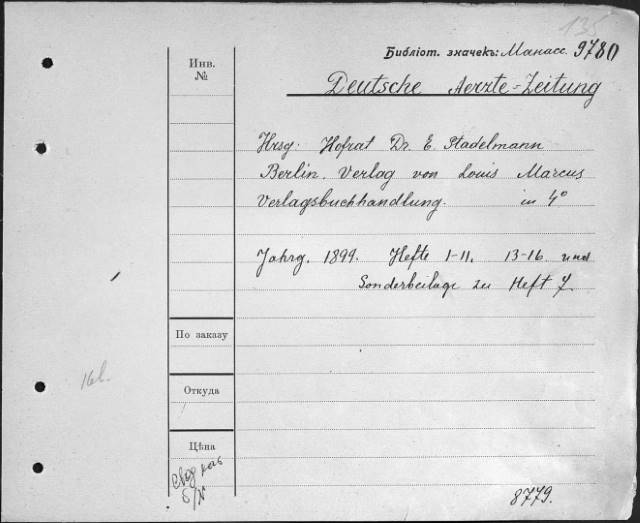 135
Библіот. значекъ: Манасс. 9780
Инв.
№
Deutsche Aerzte-Zeitung
Hrsg: Hofrat Dr. E. Stadelmann
Berlin. Verlag von Louis Marcus
Verlagsbuchhandlung. in 4°
Jahrg. 1899. Hefte 1-11. 13-16 und
Sonderbeilage zu Heft 7.
По заказу
16l.
Откуда
Цѣна
8779.